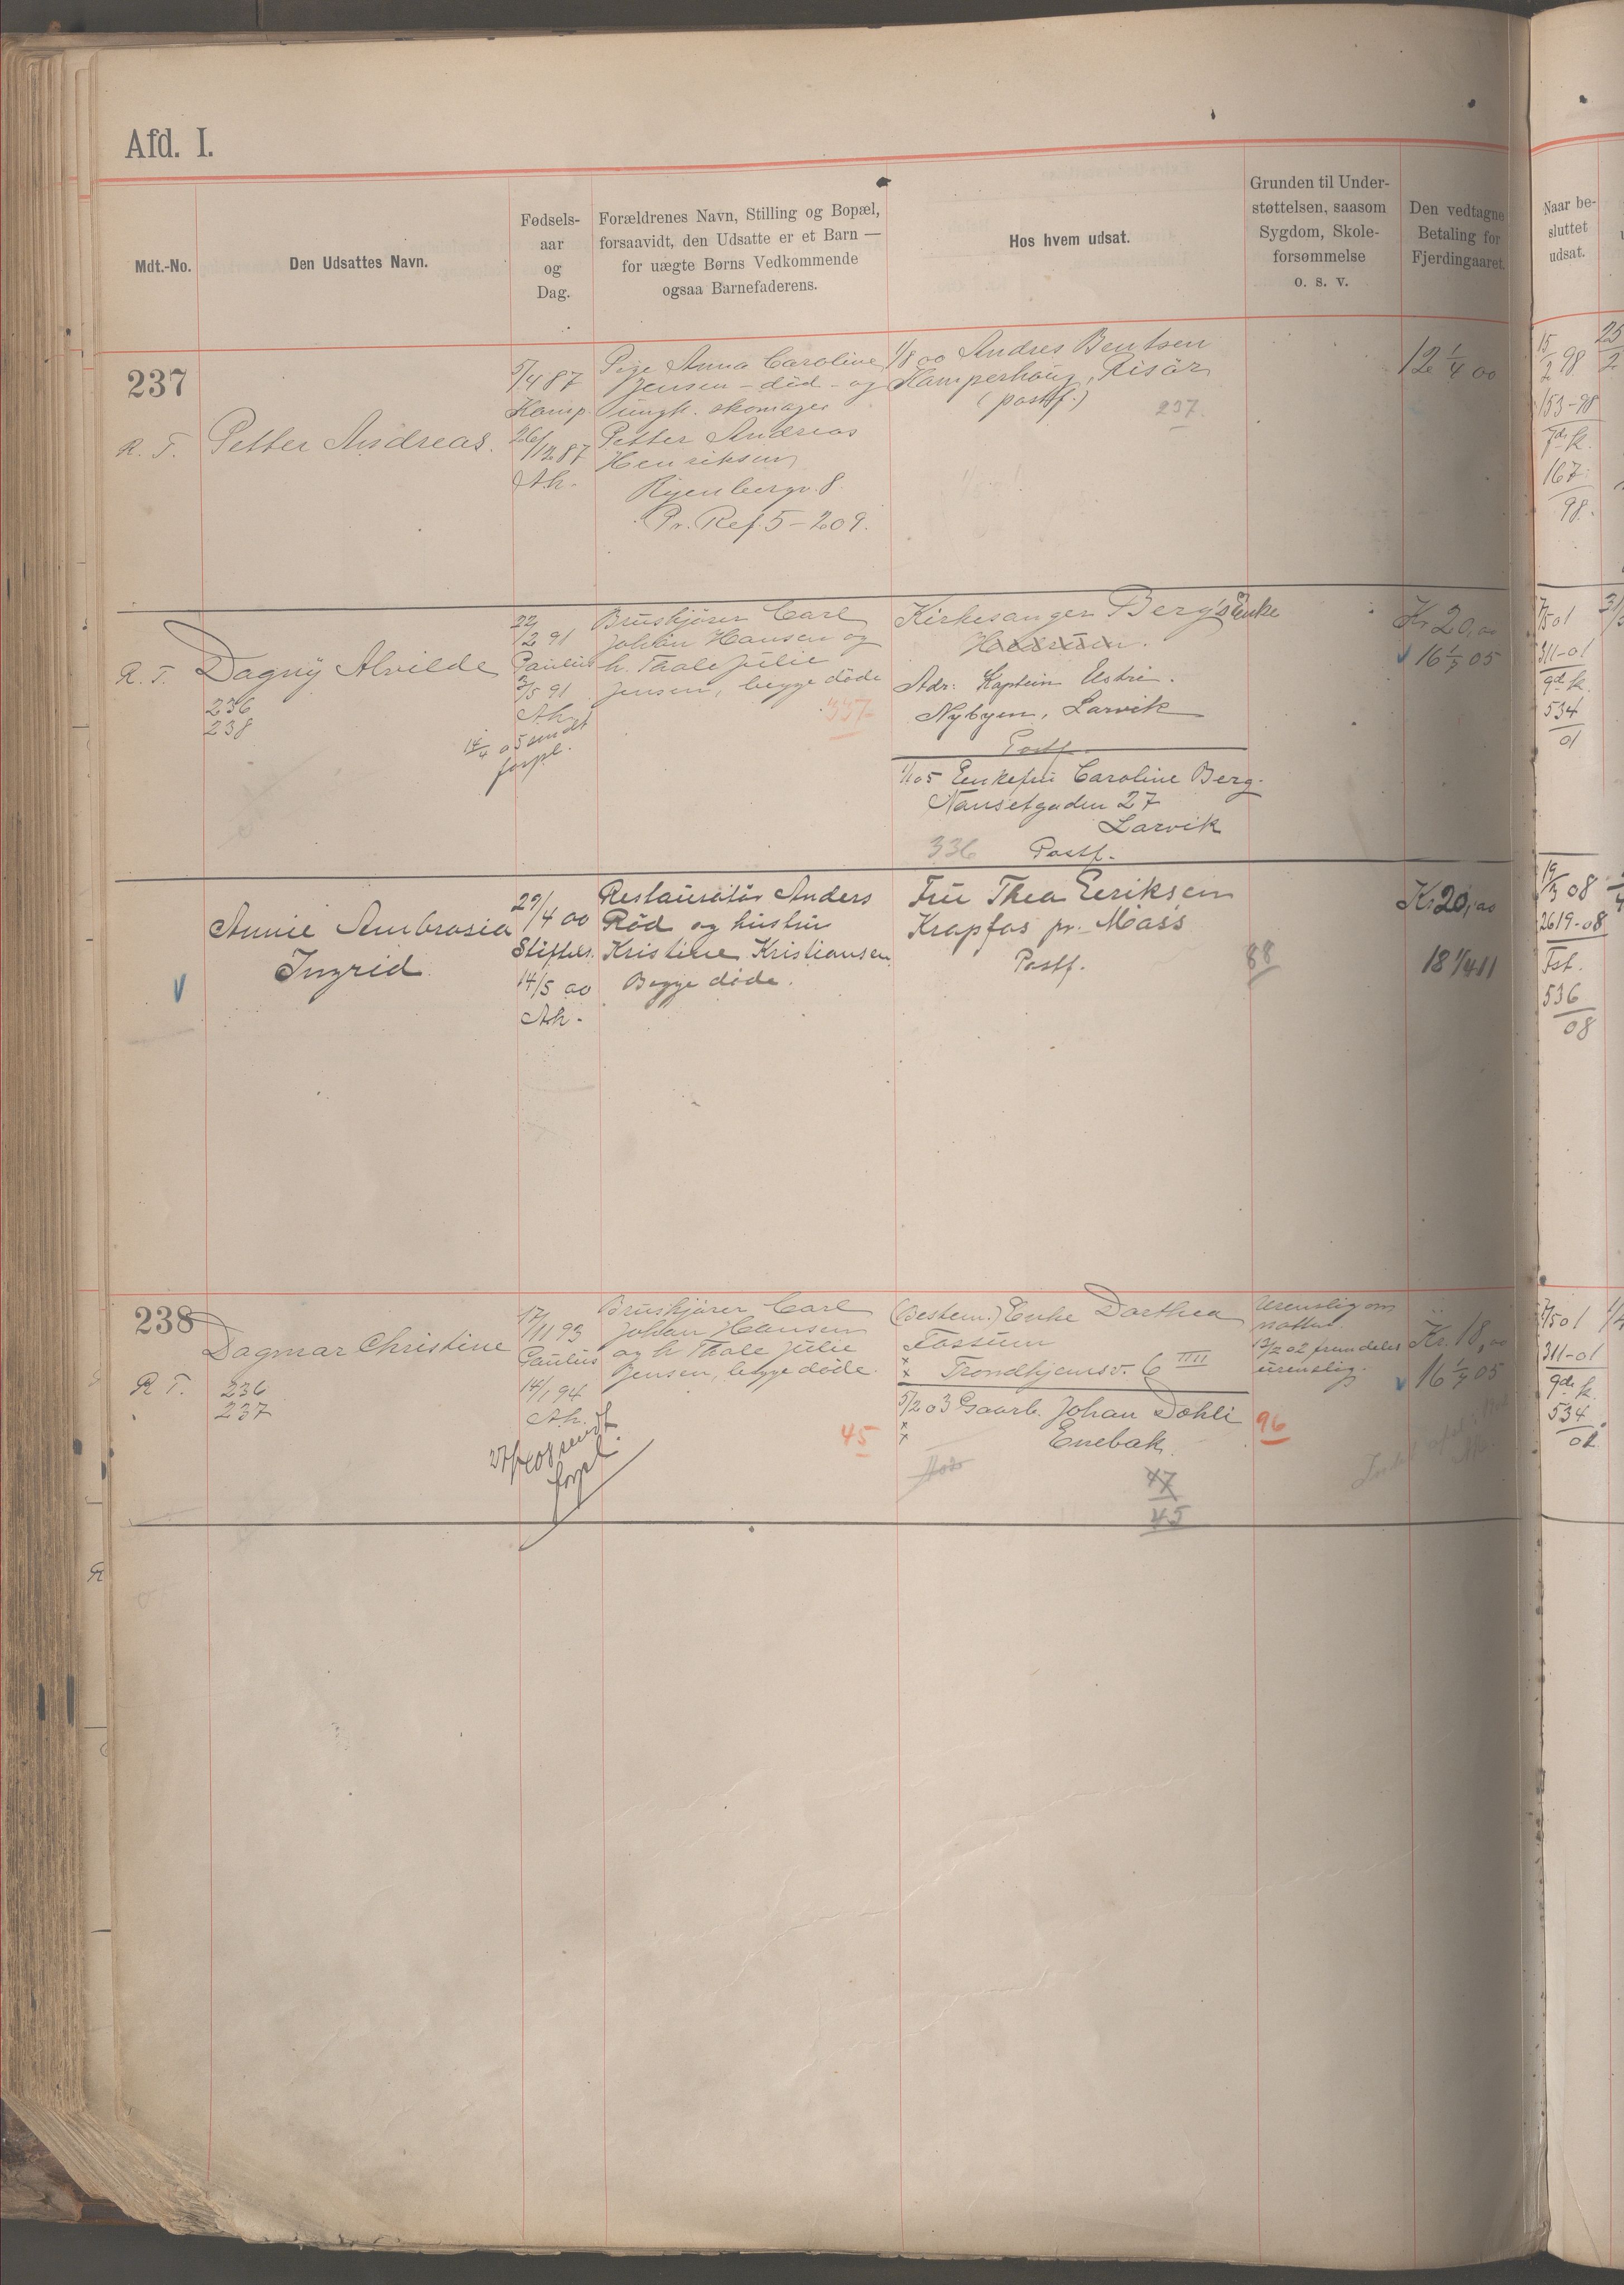 Afd. I.
Mdt.-No.
Den Udsattes Navn.
Fødsels-
aar
og
Dag.
Forældrenes Navn, Stilling og Bopæl,
forsaavidt, den Udsatte er et Barn —
for uægte Børns Vedkommende
ogsaa Barnefaderens.
Hos hvem udsat.
Grunden til Under-
støttelsen, saasom
Sygdom, Skole-
forsømmelse
o. s. v.
Den vedtagne
Betaling for
Fjerdingaaret.
Naar be-
sluttet
udsat.
237
R. T. Petter Andreas.
5/4 87
Kamp.
26/12 87
Ak.
Pige Anna Caroline
Jensen - död - og
ungk. skomager
Petter Andreas
Henriksen
Ryenbergv. 8.
Pr. Ref. 5-209.
1/8 00 Andres Bentsen
Kamperhoug, Risör
(postf.)
237.
12 1/4 00
15/2 98
153-98
7de k.
167
98.
R. T. Dagny Alvilde
236
238
22/2 91
Paulus
3/5 91
Ak.
14/4 05 sendt
forpl.
Bruskjører Carl
Johan Hansen og
h. Thale Julie
Jensen, begge döde
337
Kirkesanger Berg's Enke
Adr: Kaptein Estrie.
Nybyen, Larvik
Postf.
1/1 05 Enkefru Caroline Berg.
Nansetgaden 27
Larvik
336 Postf.
Kr 20,00
16 1/7 05
7/5 01
311-01
9de k.
534
01
Annie Ambrosia
Ingrid
29/4 00
Stiftels.
14/5 00
Ak.
Restauratör Anders
Röd og hustru
Kristine Kristiansen.
Begge döde.
Fru Thea Eeriksen
Krapfos pr. Moss
Postf.
88
Kr 20,00
18 1/4 11
19/3 08
2619-08
Tst.
536
08
238
Dagmar Christine
R T. 236
237
17/11 93
Paulus
14/1 94
Ak.
sendt
forpl.
Bruskjører Carl
Johan Hansen
og h Thale Julie
Jensen, begge döde.
45
(Bestem.) Enke Dorthea
Fossum
Trondhjemsv. 6 IIII
5/2 03 Gaarb. Johan Dohli
Enebak.
47
45
Urenslig om
natten.
13/2 02 fremdeles
urenslig.
96
Kr. 18,00
16 1/7 05
7/5 01
311-01
9de k.
534
01